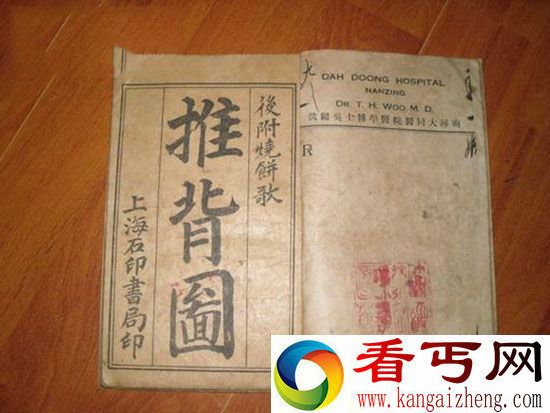 後附燒餅歌
推背圖
上海石印書局印
DAH DOONG HOSPITAL
NANZING
DR. T. H. WOO M. D.
南潯大同醫院醫學博士吳
R
看丐网
www.kangaizheng.com